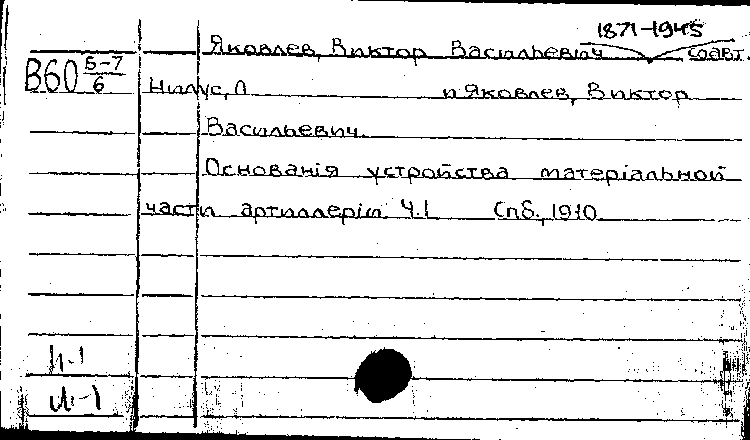 1871-1945
Яковлев, Виктор Васильевич соавт.
В60 5-7/6
Нилус, П и Яковлев, Виктор
Васильевич.
Основанія устройства матеріальной
части артиллеріи. Ч.I Спб., 1910